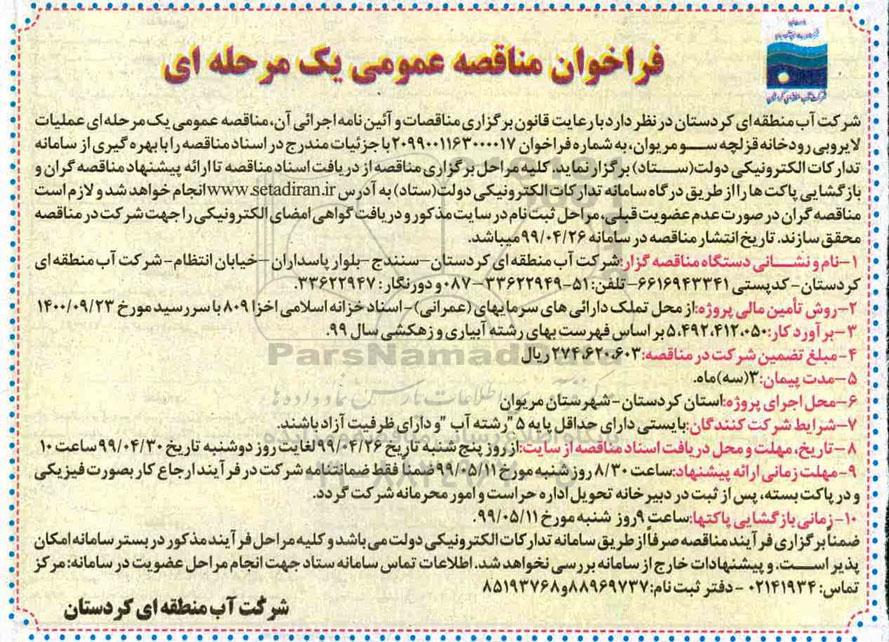 فراخوان مناقصه عمومی یک مرحله ای
شرکت آب منطقه ای کردستان در نظر دارد با رعایت قانون برگزاری مناقصات و آئین نامه اجرائی آن، مناقصه عمومی یک مرحله ای عملیات
لایروبی رودخانه قزلچه سو مریوان، به شماره فراخوان ۲۰۹۹۰۰۱۱۶۳۰۰۰۰۱۷ با جزئیات مندرج در اسناد مناقصه را با بهره گیری از سامانه
تدارکات الکترونیکی دولت(ستاد) برگزار نماید. کلیه مراحل برگزاری مناقصه از دریافت اسناد مناقصه تا ارائه پیشنهاد مناقصه گران و
بازگشایی پاکت ها را از طریق درگاه سامانه تدارکات الکترونیکی دولت(ستاد) به آدرس www.setadiran.ir انجام خواهد شد و لازم است
مناقصه گران در صورت عدم عضویت قبلی، مراحل ثبت نام در سایت مذکور و دریافت گواهی امضای الکترونیکی را جهت شرکت در مناقصه
محقق سازند. تاریخ انتشار مناقصه در سامانه ۹۹/۰۴/۲۶ میباشد.
۱-نام و نشانی دستگاه مناقصه گزار: شرکت آب منطقه ای کردستان-سنندج-بلوار پاسداران-خیابان انتظام-شرکت آب منطقه ای
کردستان-کدپستی ۶۶۱۶۹۴۳۳۴۱-تلفن: ۵۱-۳۳۶۲۲۹۴۹-۰۸۷ و دورنگار: ۳۳۶۲۲۹۴۷.
۲-روش تأمین مالی پروژه: از محل تملک دارائی های سرمایهای (عمرانی)-اسناد خزانه اسلامی اخزا ۸۰۹ با سررسید مورخ ۱۴۰۰/۰۹/۲۳
۳-برآورد کار: ۵.۴۹۲.۴۱۲.۰۵۰ بر اساس فهرست بهای رشته آبیاری و زهکشی سال ۹۹.
۴-مبلغ تضمین شرکت در مناقصه: ۲۷۴.۶۲۰.۶۰۳ ریال
۵-مدت پیمان: ۳(سه)ماه.
۶-محل اجرای پروژه: استان کردستان-شهرستان مریوان
۷-شرایط شرکت کنندگان: بایستی دارای حداقل پایه ۵ "رشته آب" و دارای ظرفیت آزاد باشند.
۸-تاریخ، مهلت و محل دریافت اسناد مناقصه از سایت: از روز پنج شنبه تاریخ ۹۹/۰۴/۲۶ لغایت روز دوشنبه تاریخ ۹۹/۰۴/۳۰ ساعت ۱۰
۹-مهلت زمانی ارائه پیشنهاد: ساعت ۸/۳۰ روز شنبه مورخ ۹۹/۰۵/۱۱ ضمناً فقط ضمانتنامه شرکت در فرآیند ارجاع کار بصورت فیزیکی
و در پاکت بسته، پس از ثبت در دبیرخانه تحویل اداره حراست و امور محرمانه شرکت گردد.
۱۰-زمانی بازگشایی پاکتها: ساعت ۹ روز شنبه مورخ ۹۹/۰۵/۱۱.
ضمناً برگزاری فرآیند مناقصه صرفاً از طریق سامانه تدارکات الکترونیکی دولت می باشد و کلیه مراحل فرآیند مذکور در بستر سامانه امکان
پذیر است. و پیشنهادات خارج از سامانه بررسی نخواهد شد. اطلاعات تماس سامانه ستاد جهت انجام مراحل عضویت در سامانه: مرکز
تماس: ۰۲۱۴۱۹۳۴ -دفتر ثبت نام: ۸۸۹۶۹۷۳۷ و ۸۵۱۹۳۷۶۸
شرکت آب منطقه ای کردستان